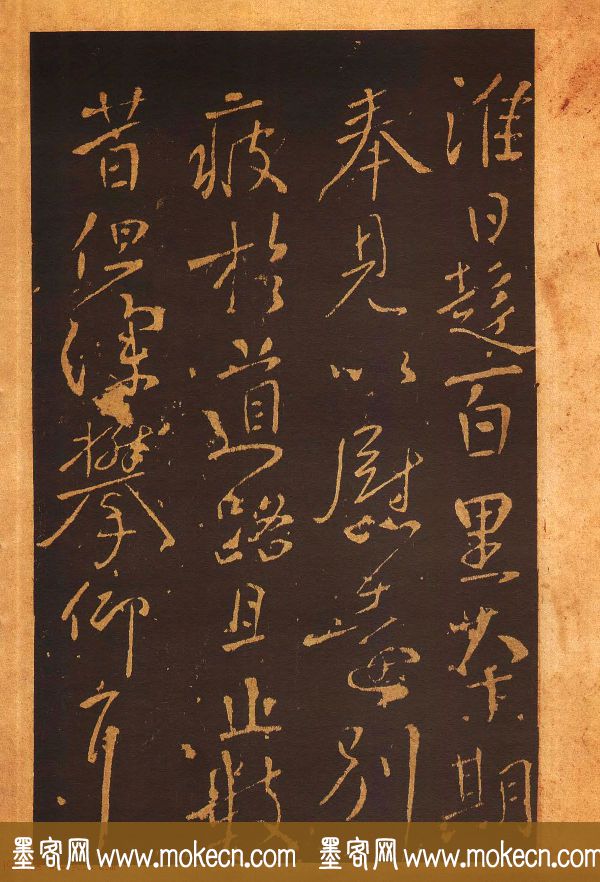 日趍百里期
奉見以慰別
疲於道路且止數
昔但深攀仰
墨客网 www.mokecn.com 墨客网 www.mokecn.com